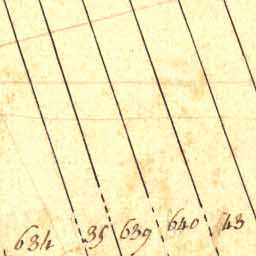 634 35 639 640 43